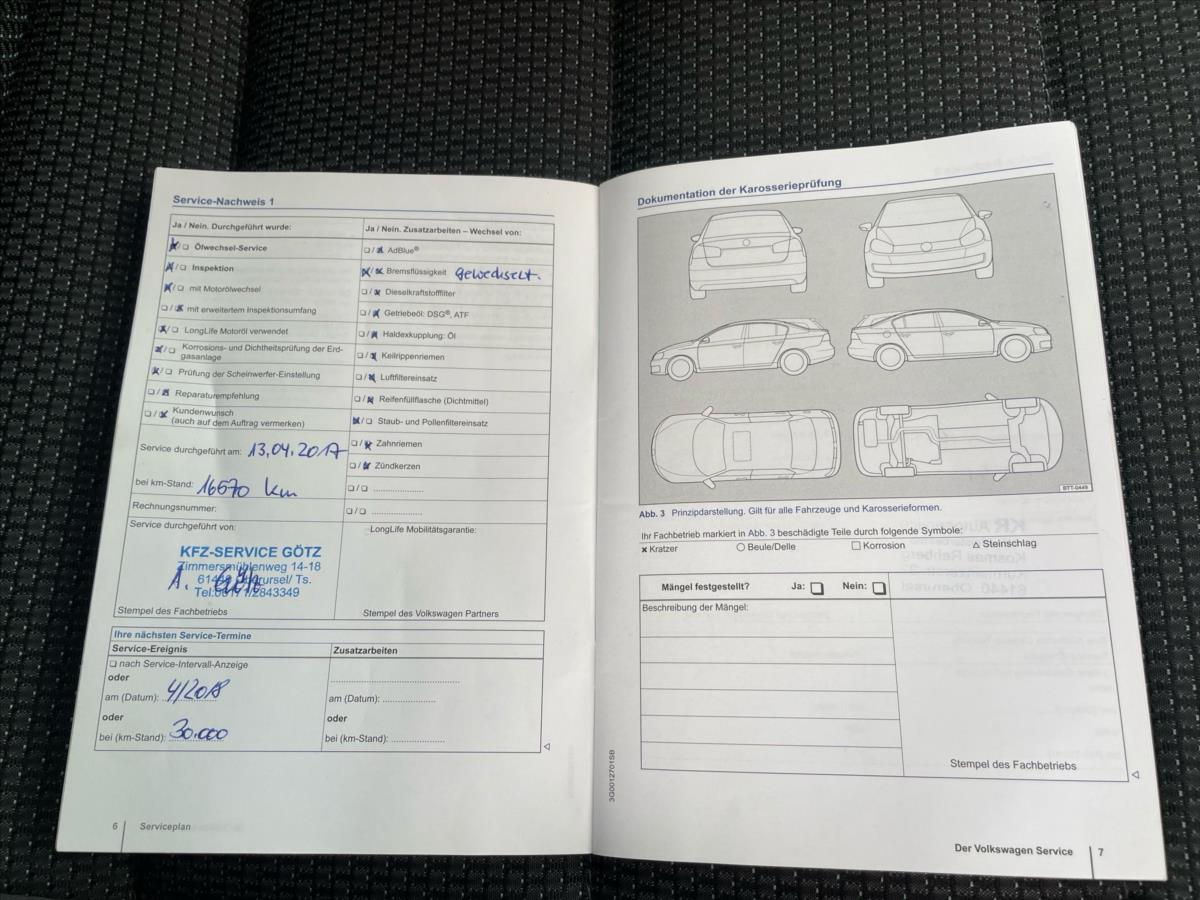 Service-Nachweis 1
Ja / Nein. Durchgeführt wurde:
☒/☐ Ölwechsel-Service
☒/☐ Inspektion
☒/☐ mit Motorölwechsel
☐/☒ mit erweitertem Inspektionsumfang
☒/☐ LongLife Motoröl verwendet
☒/☐ Korrosions- und Dichtheitsprüfung der Erd-
gasanlage
☒/☐ Prüfung der Scheinwerfer-Einstellung
☐/☒ Reparaturempfehlung
☐/☒ Kundenwunsch
(auch auf dem Auftrag vermerken)
Service durchgeführt am: 13.04.2017
bei km-Stand: 16570 km
Rechnungsnummer:
Service durchgeführt von:
KFZ-SERVICE GÖTZ
Zimmersmühlenweg 14-18
Oberursel/ Ts.
Stempel des Fachbetriebs
Ja / Nein. Zusatzarbeiten – Wechsel von:
☐/☒ AdBlue®
☒/☒ Bremsflüssigkeit gewechselt.
☐/☒ Dieselkraftstofffilter
☐/☒ Getriebeöl: DSG®, ATF
☐/☒ Haldexkupplung: Öl
☐/☒ Keilrippenriemen
☐/☒ Luftfiltereinsatz
☐/☒ Reifenfüllflasche (Dichtmittel)
☒/☐ Staub- und Pollenfiltereinsatz
☐/☒ Zahnriemen
☐/☒ Zündkerzen
☐/☐ .....................
☐/☐ .....................
LongLife Mobilitätsgarantie:
Stempel des Volkswagen Partners
Ihre nächsten Service-Termine
Service-Ereignis
☐ nach Service-Intervall-Anzeige
oder
am (Datum): 4/2018
oder
bei (km-Stand): 30.000
Zusatzarbeiten
am (Datum): .....................
oder
bei (km-Stand): .....................
6 Serviceplan
Dokumentation der Karosserieprüfung
BTT-0449
Abb. 3 Prinzipdarstellung. Gilt für alle Fahrzeuge und Karosserieformen.
Ihr Fachbetrieb markiert in Abb. 3 beschädigte Teile durch folgende Symbole:
✖ Kratzer ○ Beule/Delle ☐ Korrosion △ Steinschlag
Mängel festgestellt? Ja: ☐ Nein: ☐
Beschreibung der Mängel:
Stempel des Fachbetriebs
3G0012701SB
Der Volkswagen Service 7